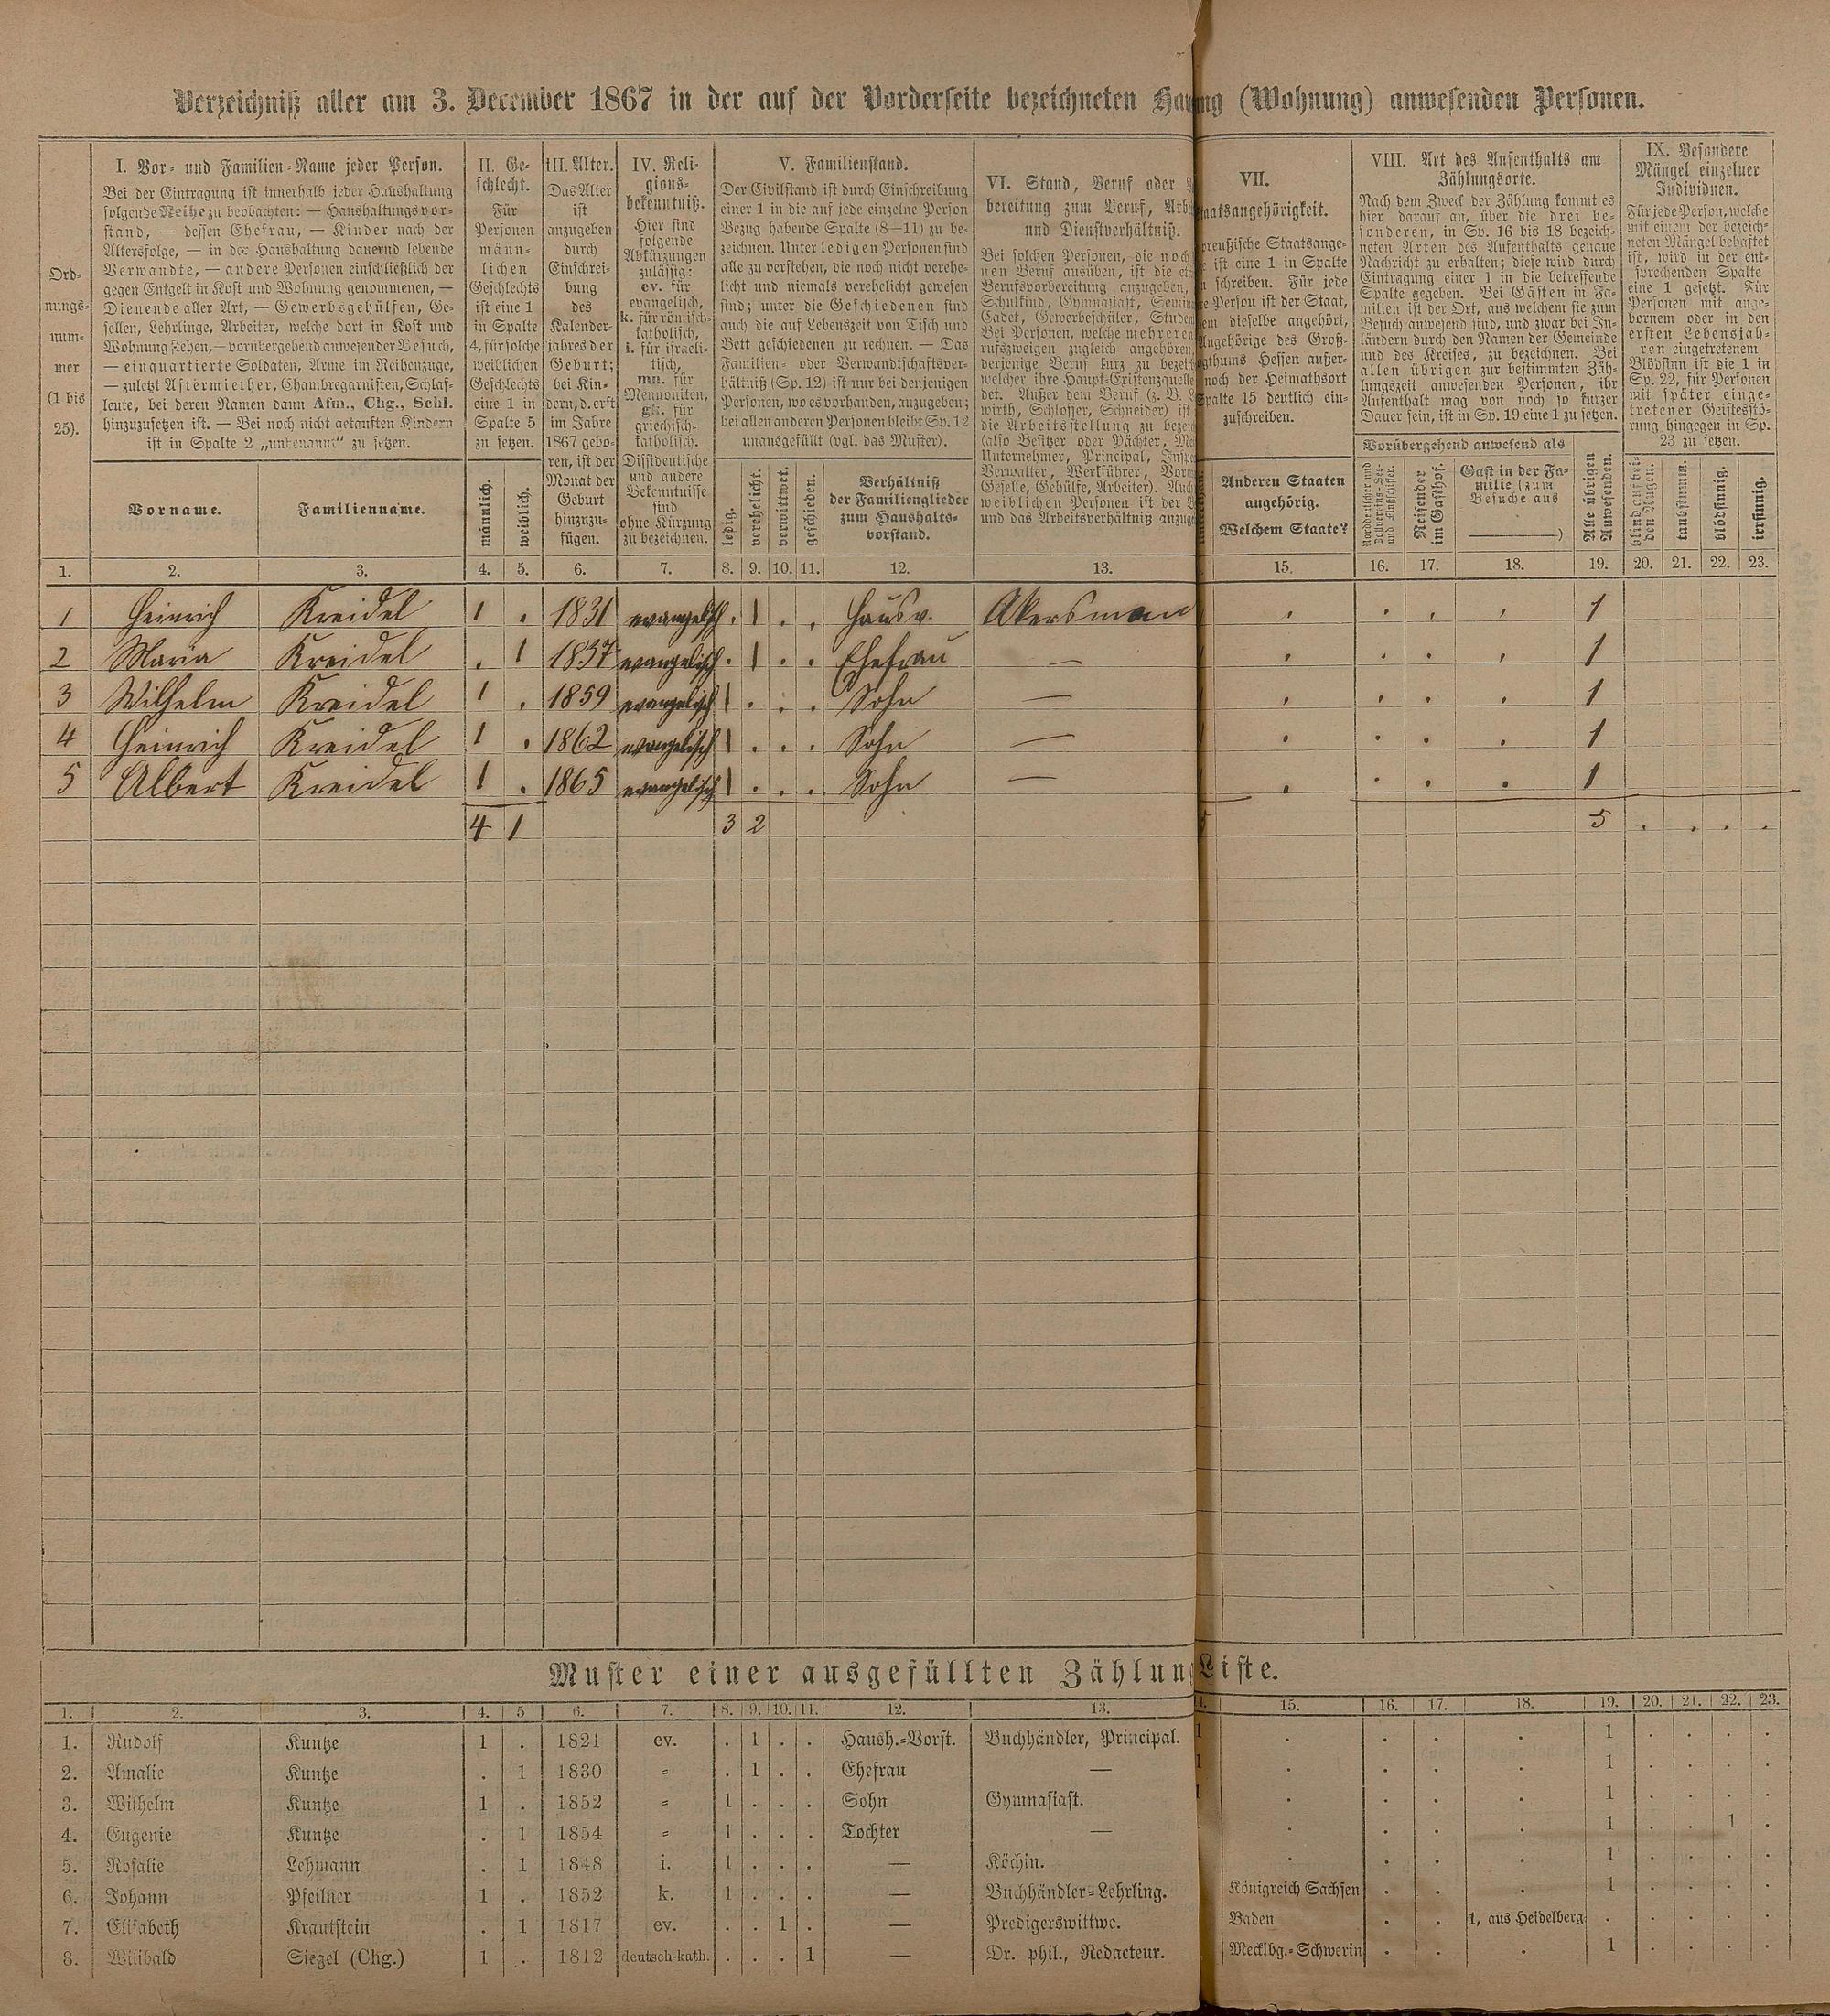 Verzeichniß aller am 3. December 1867 in der auf der Vorderseite bezeichneten Hau ng (Wohnung) anwesenden Personen.
Ord-
nungs-
num-
mer
(1 bis
25).
I. Vor- und Familien-Name jeder Person.
Bei der Eintragung ist innerhalb jeder Haushaltung
folgende Reihe zu beobachten: — Haushaltungsvor-
stand, — dessen Ehefrau, — Kinder nach der
Altersfolge, — in der Haushaltung dauernd lebende
Verwandte, — andere Personen einschließlich der
gegen Entgelt in Kost und Wohnung genommenen, —
Dienende aller Art, — Gewerbsgehülfen, Ge-
sellen, Lehrlinge, Arbeiter, welche dort in Kost und
Wohnung stehen, — vorübergehend anwesender Besuch,
— einquartierte Soldaten, Arme im Reihenzuge,
— zuletzt Aftermiether, Chambregarnisten, Schlaf-
leute, bei deren Namen dann Afm., Chg., Schl.
hinzuzusetzen ist. — Bei noch nicht getauften Kindern
ist in Spalte 2 „unbenannt“ zu setzen.
Vorname.
Familienname.
II. Ge-
schlecht.
Für
Personen
männ-
lichen
Geschlechts
ist eine 1
in Spalte
4, für solche
weiblichen
Geschlechts
eine 1 in
Spalte 5
zu setzen.
männlich.
weiblich.
III. Alter.
Das Alter
ist
anzugeben
durch
Einschrei-
bung
des
Kalender-
jahres der
Geburt;
bei Kin-
dern, d. erst
im Jahre
1867 gebo-
ren, ist der
Monat der
Geburt
hinzuzu-
fügen.
IV. Reli-
gions-
bekenntniß.
Hier sind
folgende
Abkürzungen
zulässig:
ev. für
evangelisch,
k. für römisch-
katholisch,
i. für israeli-
tisch,
mn. für
Mennoniten,
gk. für
griechisch-
katholisch.
Dissidentische
und andere
Bekenntnisse
sind
ohne Kürzung
zu bezeichnen.
V. Familienstand.
Der Civilstand ist durch Einschreibung
einer 1 in die auf jede einzelne Person
Bezug habende Spalte (8—11) zu be-
zeichnen. Unter ledigen Personen sind
alle zu verstehen, die noch nicht verehe-
licht und niemals verehelicht gewesen
sind; unter die Geschiedenen sind
auch die auf Lebenszeit von Tisch und
Bett geschiedenen zu rechnen. — Das
Familien- oder Verwandtschaftsver-
hältniß (Sp. 12) ist nur bei denjenigen
Personen, wo es vorhanden, anzugeben;
bei allen anderen Personen bleibt Sp. 12
unausgefüllt (vgl. das Muster).
ledig.
verehelicht.
verwittwet.
geschieden.
Verhältniß
der Familienglieder
zum Haushalts-
vorstand.
VI. Stand, Beruf oder
bereitung zum Beruf, Arb
und Dienstverhältniß.
Bei solchen Personen, die noch
nen Beruf ausüben, ist die et
Berufsvorbereitung anzugeben,
Schulkind, Gymnasiast, Semin
Cadet, Gewerbeschüler, Studen
Bei Personen, welche mehreren
rufszweigen zugleich angehören
derjenige Beruf kurz zu bezeic
welcher ihre Haupt-Existenzquelle
det. Außer dem Beruf (z. B.
wirth, Schlosser, Schneider) ist
die Arbeitsstellung zu bezeic
(also Besitzer oder Pächter, Me
Unternehmer, Principal, Inspe
Verwalter, Werkführer, Vorm
Geselle, Gehülfe, Arbeiter). Auch
weiblichen Personen ist der B
und das Arbeitsverhältniß anzuge
VII.
taatsangehörigkeit.
preußische Staatsange-
ist eine 1 in Spalte
schreiben. Für jede
re Person ist der Staat,
em dieselbe angehört,
Angehörige des Groß-
gthums Hessen außer-
noch der Heimathsort
Spalte 15 deutlich ein-
zuschreiben.
Anderen Staaten
angehörig.
Welchem Staate?
VIII. Art des Aufenthalts am
Zählungsorte.
Nach dem Zweck der Zählung kommt es
hier darauf an, über die drei be-
sonderen, in Sp. 16 bis 18 bezeich-
neten Arten des Aufenthalts genaue
Nachricht zu erhalten; diese wird durch
Eintragung einer 1 in die betreffende
Spalte gegeben. Bei Gästen in Fa-
milien ist der Ort, aus welchem sie zum
Besuch anwesend sind, und zwar bei In-
ländern durch den Namen der Gemeinde
und des Kreises, zu bezeichnen. Bei
allen übrigen zur bestimmten Zäh-
lungszeit anwesenden Personen, ihr
Aufenthalt mag von noch so kurzer
Dauer sein, ist in Sp. 19 eine 1 zu setzen.
Vorübergehend anwesend als
Norddeutscher und
Zollvereins-See-
und Flußschiffer.
Reisender
im Gasthof.
Gast in der Fa-
milie (zum
Besuche aus
)
Alle übrigen
Anwesenden.
IX. Besondere
Mängel einzelner
Individuen.
Für jede Person, welche
mit einem der bezeich-
neten Mängel behaftet
ist, wird in der ent-
sprechenden Spalte
eine 1 gesetzt. Für
Personen mit ange-
bornem oder in den
ersten Lebensjah-
ren eingetretenem
Blödsinn ist die 1 in
Sp. 22, für Personen
mit später einge-
tretener Geistesstö-
rung hingegen in Sp.
23 zu setzen.
blind auf bei-
den Augen.
taubstumm.
blödsinnig.
irrsinnig.
1. 2. 3. 4. 5. 6. 7. 8. 9. 10. 11. 12. 13. 15. 16. 17. 18. 19. 20. 21. 22. 23.
1 Heinrich Kreidel 1 . 1831 evangelisch . 1 . . Hausv. Akersmann . . . . 1
2 Maria Kreidel . 1 1837 evangelisch . 1 . . Ehefrau — . . . . 1
3 Wilhelm Kreidel 1 . 1859 evangelisch 1 . . . Sohn — . . . . 1
4 Heinrich Kreidel 1 . 1862 evangelisch 1 . . . Sohn — . . . . 1
5 Albert Kreidel 1 . 1865 evangelisch 1 . . . Sohn — . . . . 1
4 1 3 2 5 . . . .
Muster einer ausgefüllten Zählun Liste.
1. 2. 3. 4. 5 6. 7. 8. 9. 10. 11. 12. 13. 15. 16. 17. 18. 19. 20. 21. 22. 23.
1. Rudolf Kuntze 1 . 1821 ev. . 1 . . Haush.-Vorst. Buchhändler, Principal. 1 . . . . 1 . . . .
2. Amalie Kuntze . 1 1830 = . 1 . . Ehefrau — 1 . . . . 1 . . . .
3. Wilhelm Kuntze 1 . 1852 = 1 . . . Sohn Gymnasiast. 1 . . . . 1 . . . .
4. Eugenie Kuntze . 1 1854 = 1 . . . Tochter — . . . . 1 . . 1 .
5. Rosalie Lehmann . 1 1848 i. 1 . . . — Köchin. . . . . 1 . . . .
6. Johann Pfeilner 1 . 1852 k. 1 . . . — Buchhändler-Lehrling. Königreich Sachsen . . . 1 . . . .
7. Elisabeth Krautstein . 1 1817 ev. . . 1 . — Predigerswittwe. Baden . . 1, aus Heidelberg . . . . .
8. Wilibald Siegel (Chg.) 1 . 1812 deutsch-kath. . . . 1 — Dr. phil., Redacteur. Mecklbg.-Schwerin . . . 1 . . . .